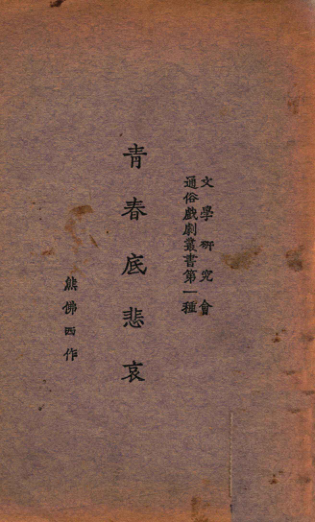 文學研究會
通俗戲劇叢書第一種
青春底悲哀
熊佛西作